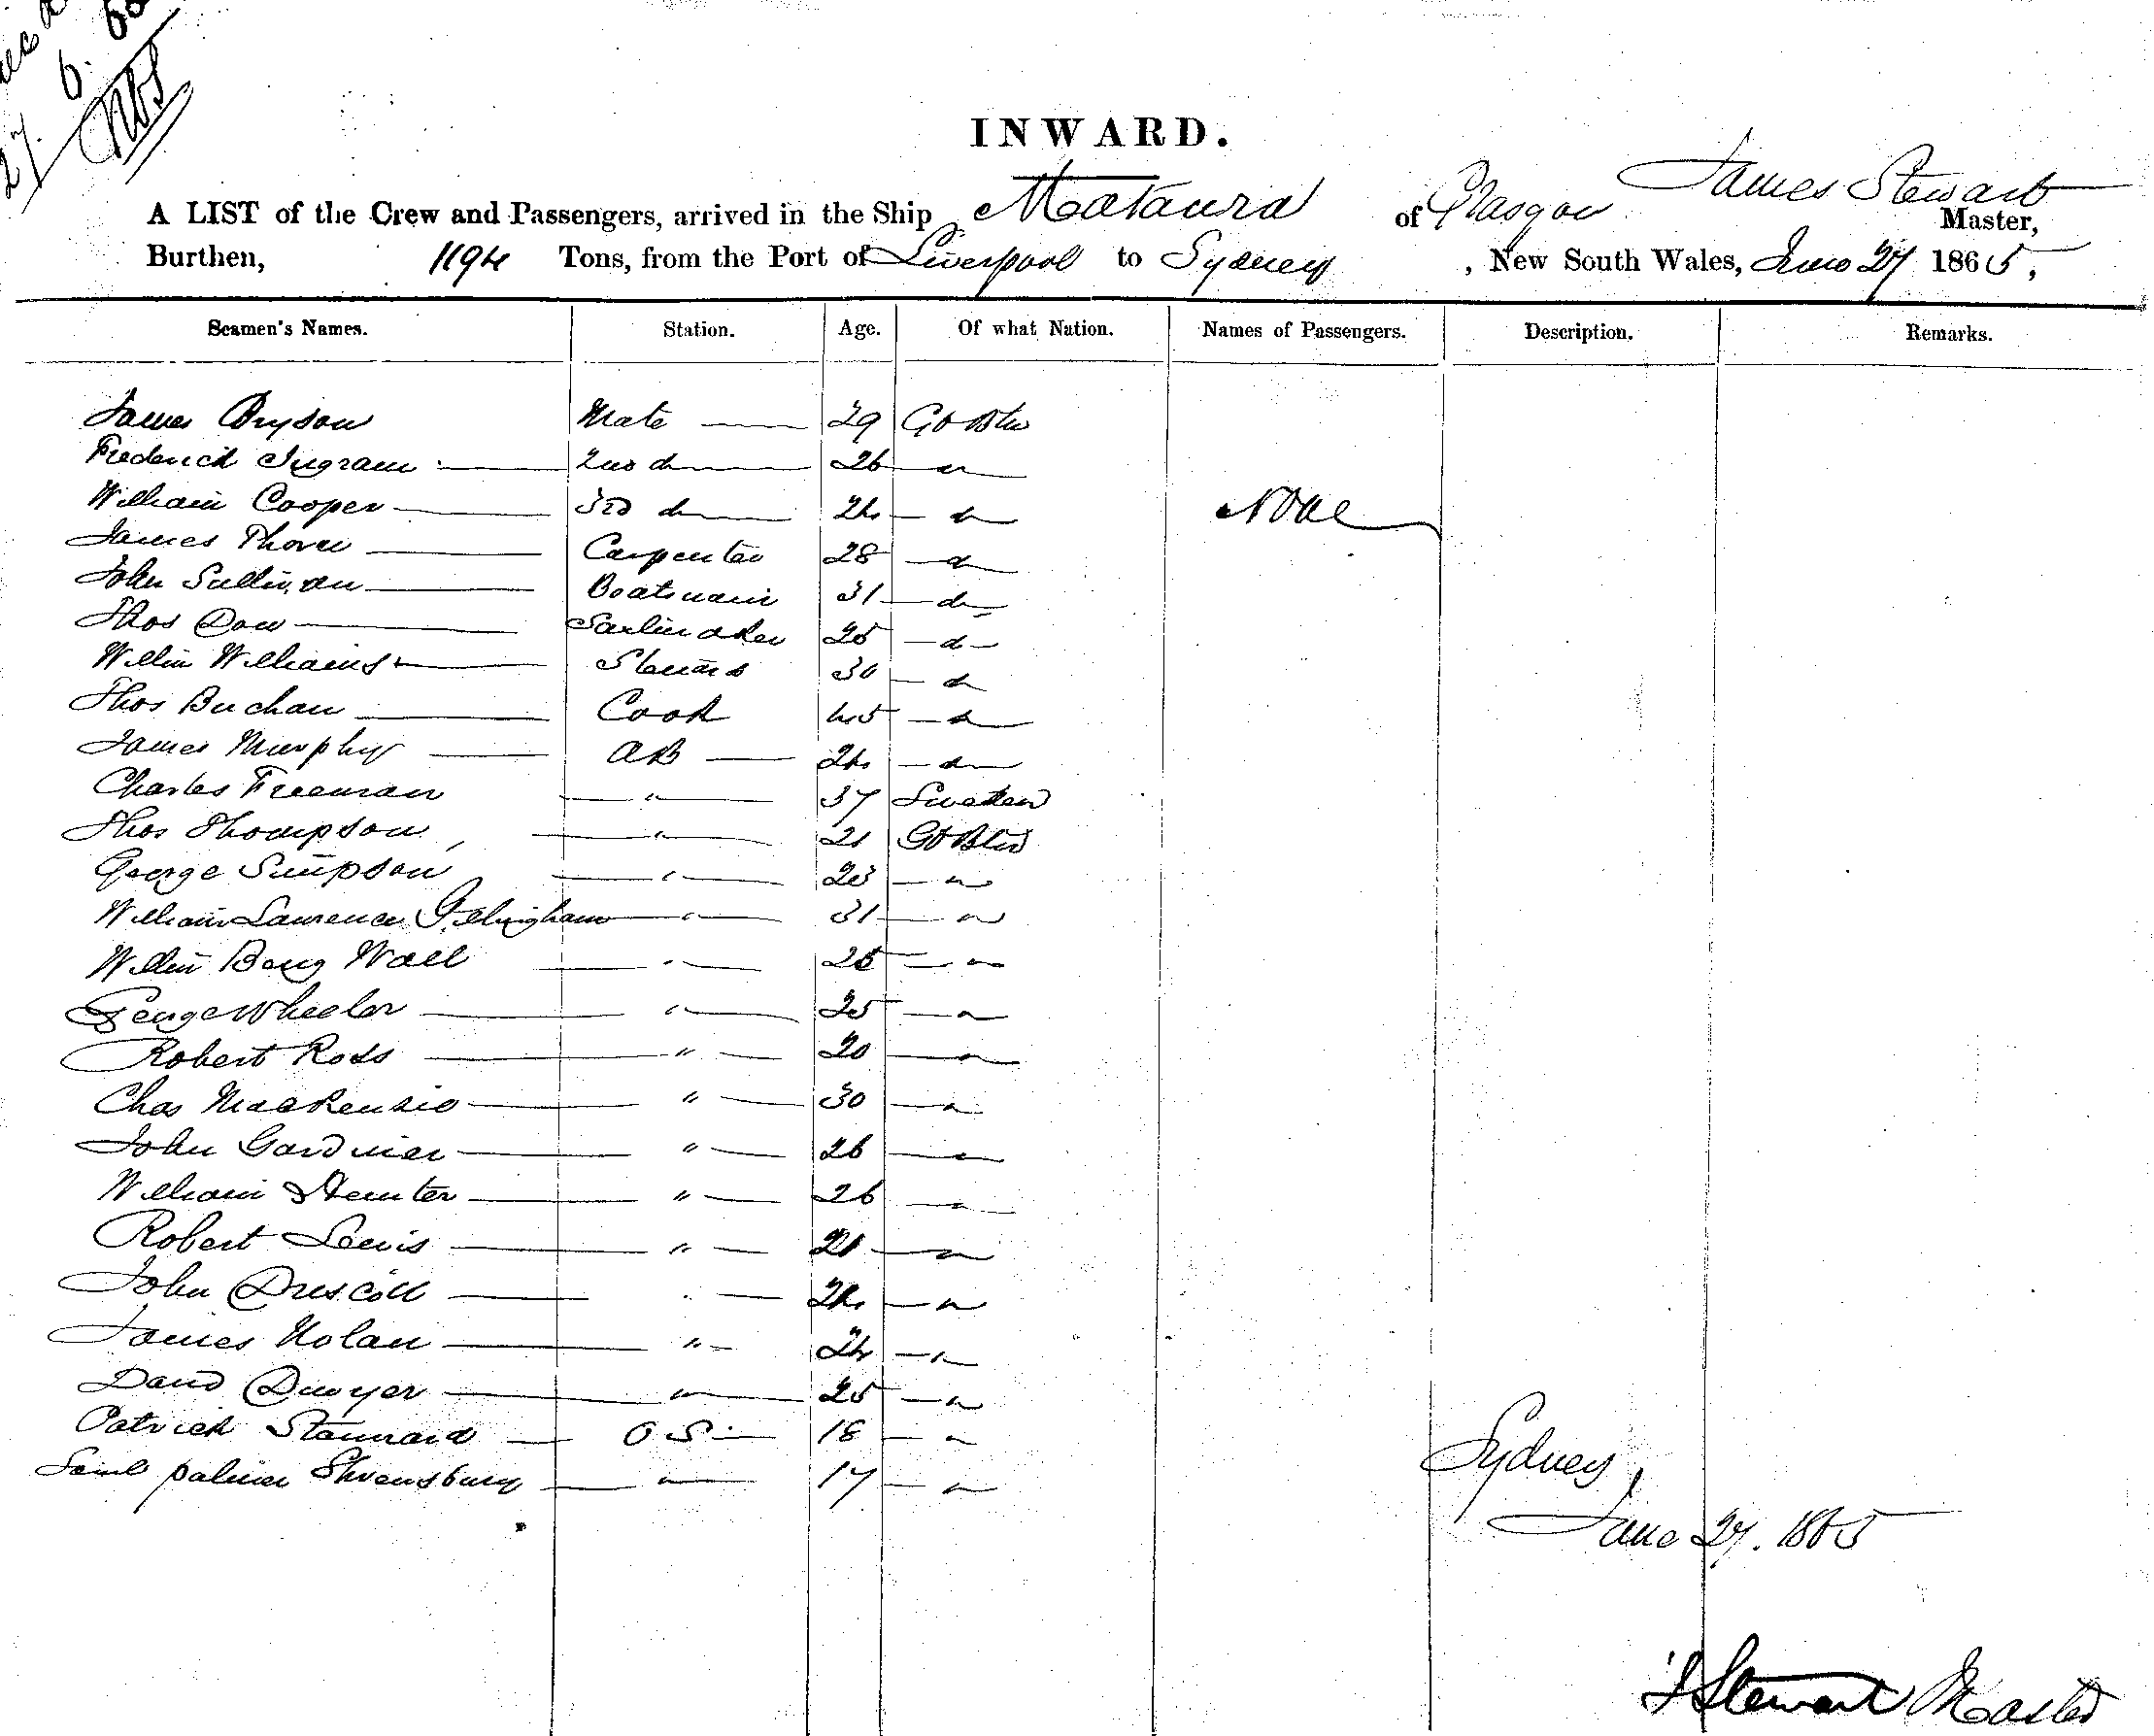 27. 6. 65
INWARD.
A LIST of the Crew and Passengers, arrived in the Ship Mataura of Glasgow James Stewart Master,
Burthen, 1194 Tons, from the Port of Liverpool to Sydney, New South Wales, June 27 1865,
Seamen's Names. Station. Age. Of what Nation. Names of Passengers. Description. Remarks.
James Bryson Mate 29 Gt Btn
Frederick Ingram 2nd do 26 "
William Cooper 3rd do 24 do None
James Thorn Carpenter 28 do
John Sullivan Boatswain 31 do
Thos Dow Sailmaker 25 do
Willm Williams Steward 30 do
Thos Buchan Cook 45 do
James Murphy AB 24 do
Charles Freeman " 37 Sweden
Thos Thompson " 21 Gt Btn
George Simpson " 23 "
William Lawrence Gillingham " 31 "
Willm Wall " 25 "
George Wheeler " 25 "
Robert Ross " 20 "
Chas MacKenzie " 30 "
John Gardiner " 26 "
William Hunter " 26 "
Robert Lewis " 21 "
John Driscoll " 24 "
James Nolan " 24 "
David Dwyer " 25 "
Patrick Stannard O S 18 "
Saml palmer Shrewsbury " 17 "
Sydney,
June 27. 1865
J Stewart Master